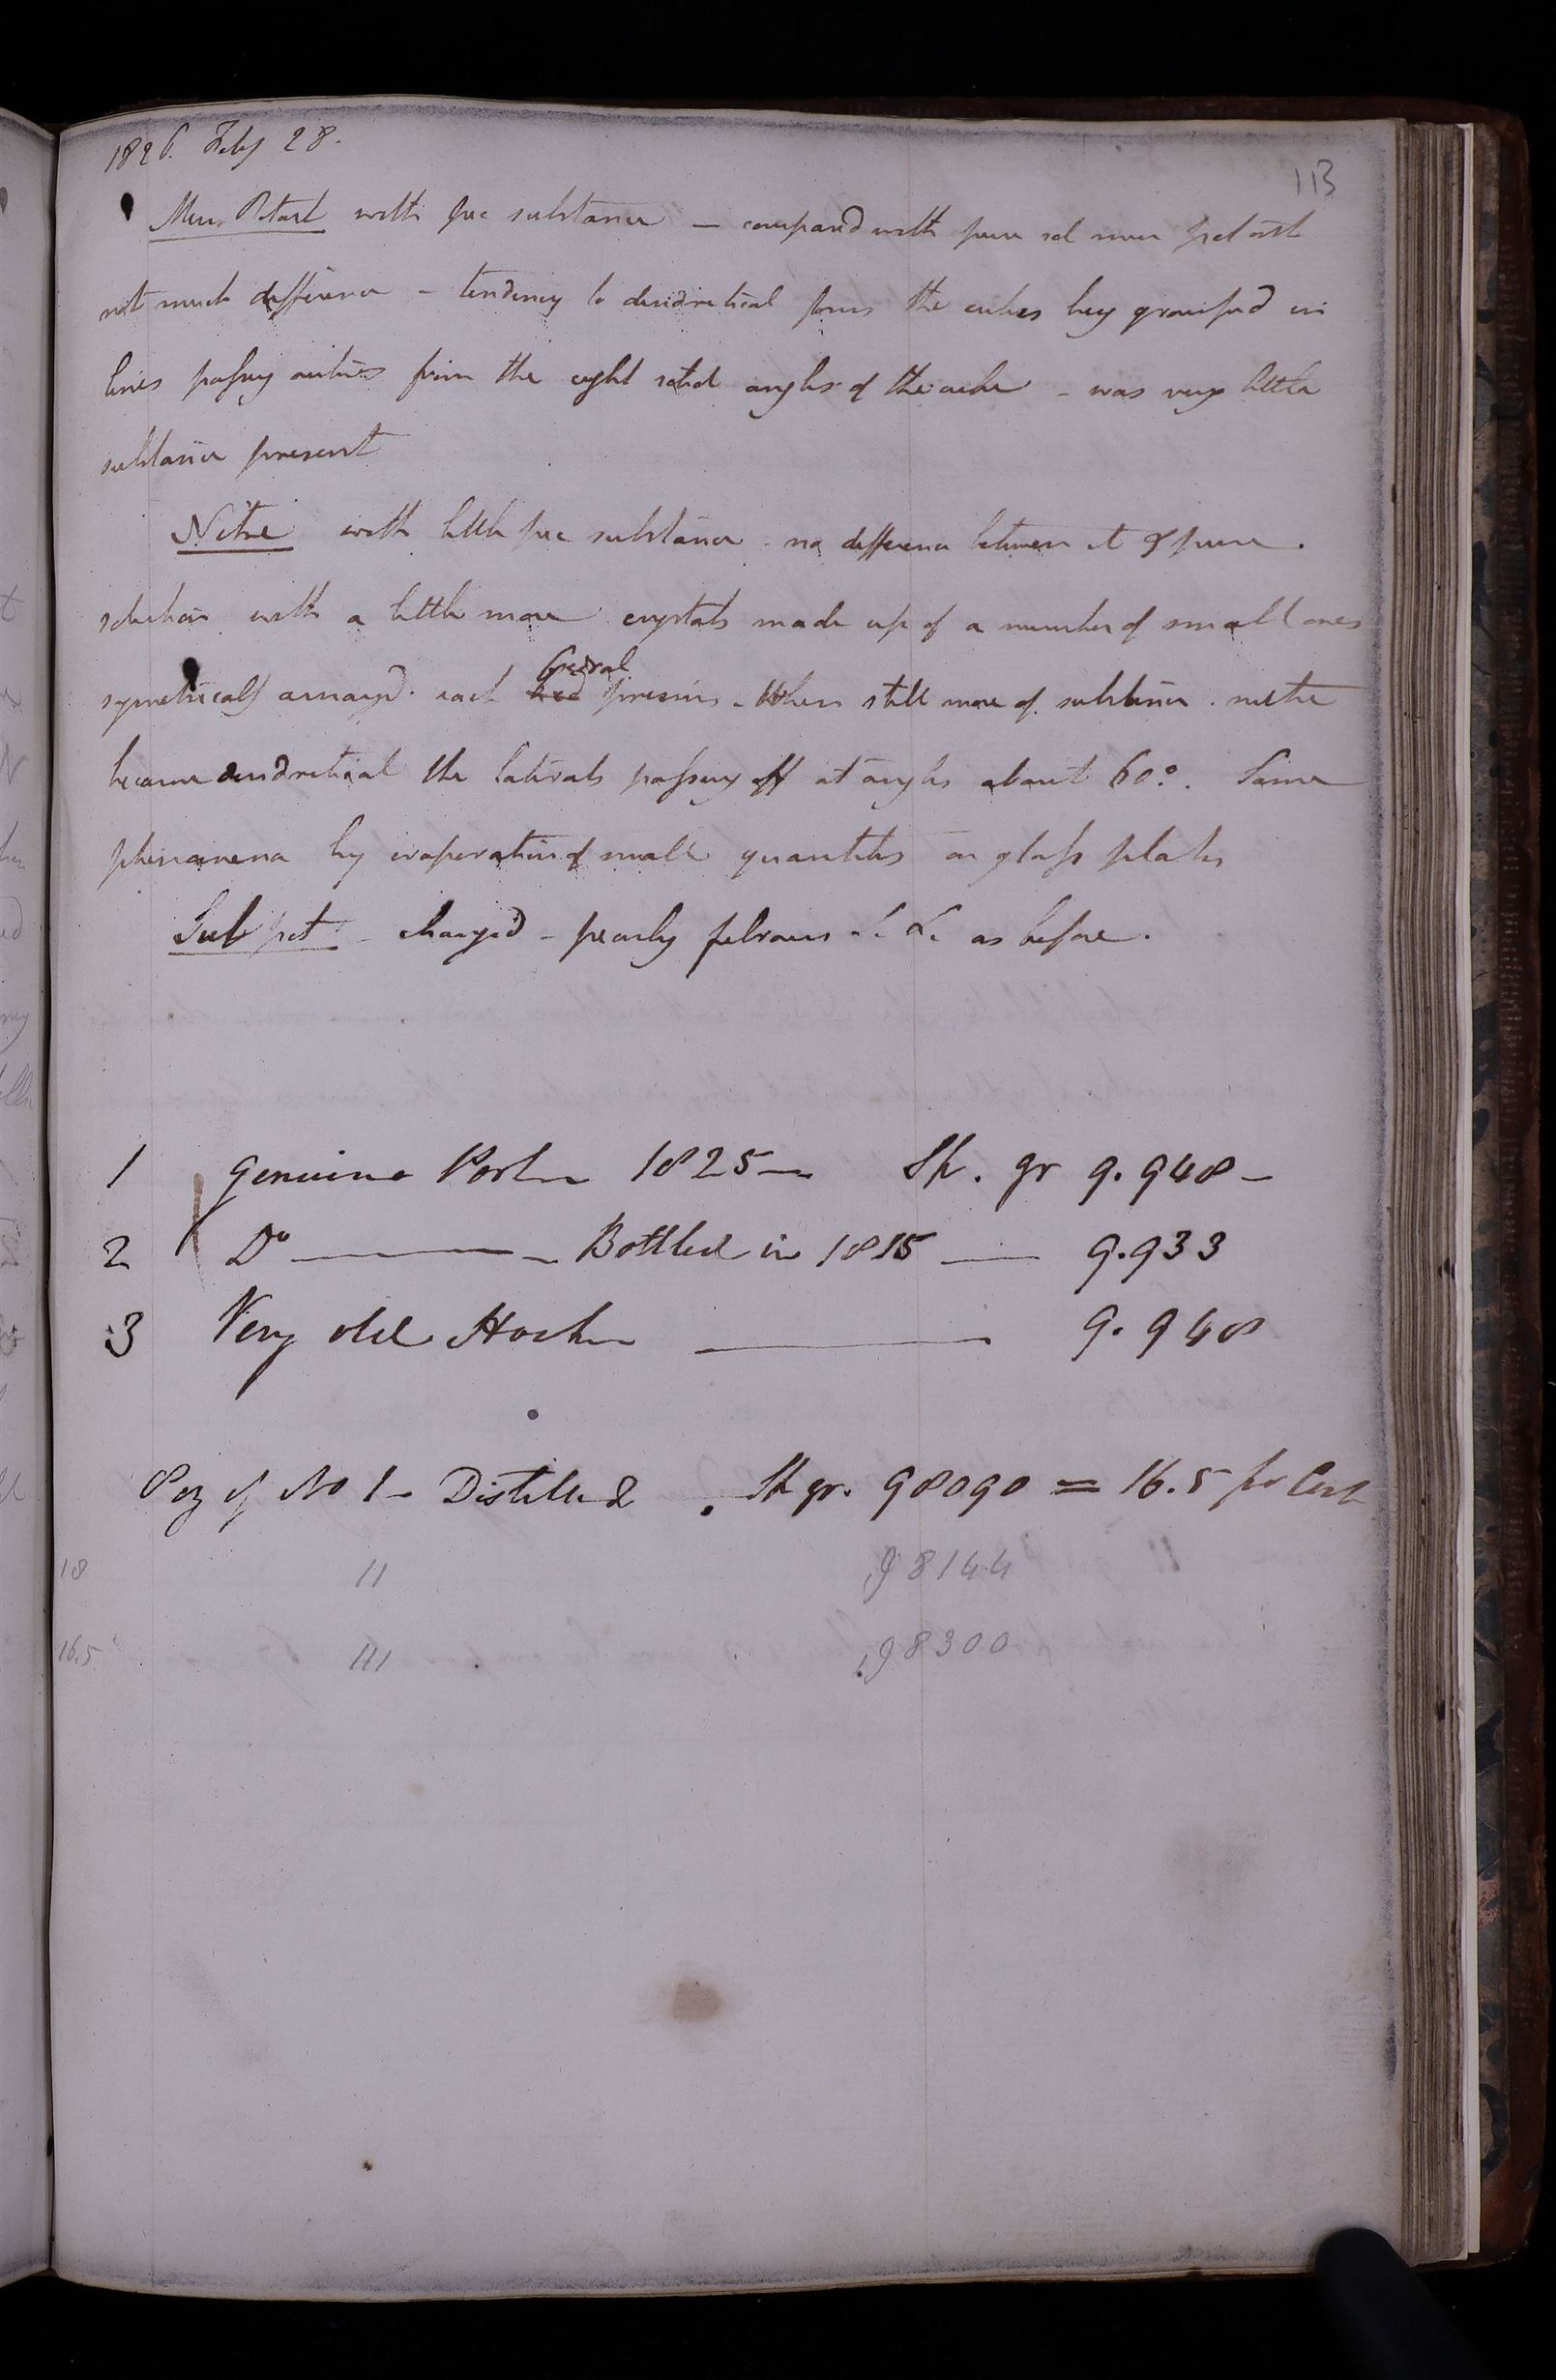 1826. Feby 28.
113
Mur. Potash with pec substance — compard with pure sol mur potash
not much difference - tendency to dendretical forms the cubes being grouped in
lines passing outwards from the eight solid angles of the cube - was very little
substance present
Nitre with little pec substance - no difference between it & pure.
solution with a little more crystals made up of a number of small ones
symetricaly arrangd. each 6hedral prisms - When still more of substance . nitre
became dendretical the laterals passing off at angles about 60°. Same
phenomena by evaporation of small quantities on glass plates
Sub pet - changed - pearly fibrous &c &c as before.
1 Genuine Port 1825 — Sp. gr 9.948 -
2 Do ——— Bottled in 1815 — 9.933
3 Very old Hock ——— 9.948
8 oz of No 1 - Distilled . Sp gr. 98090 = 16.5 per Cent
18 II ,98144
16.5 III ,98300